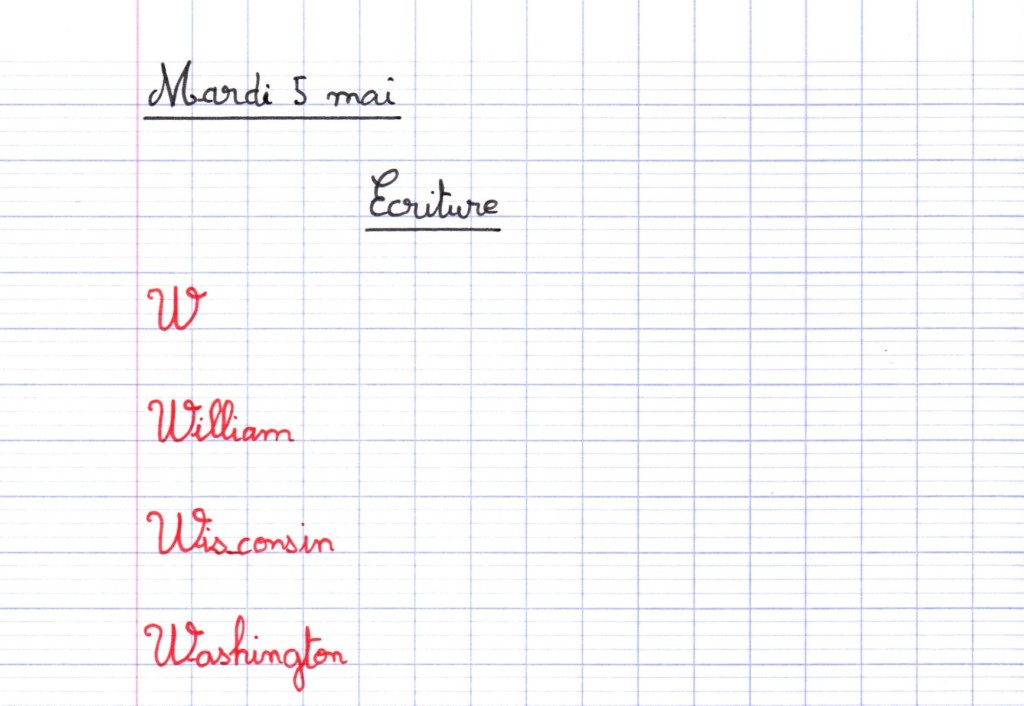 Mardi 5 mai
Ecriture
W
William
Wisconsin
Washington